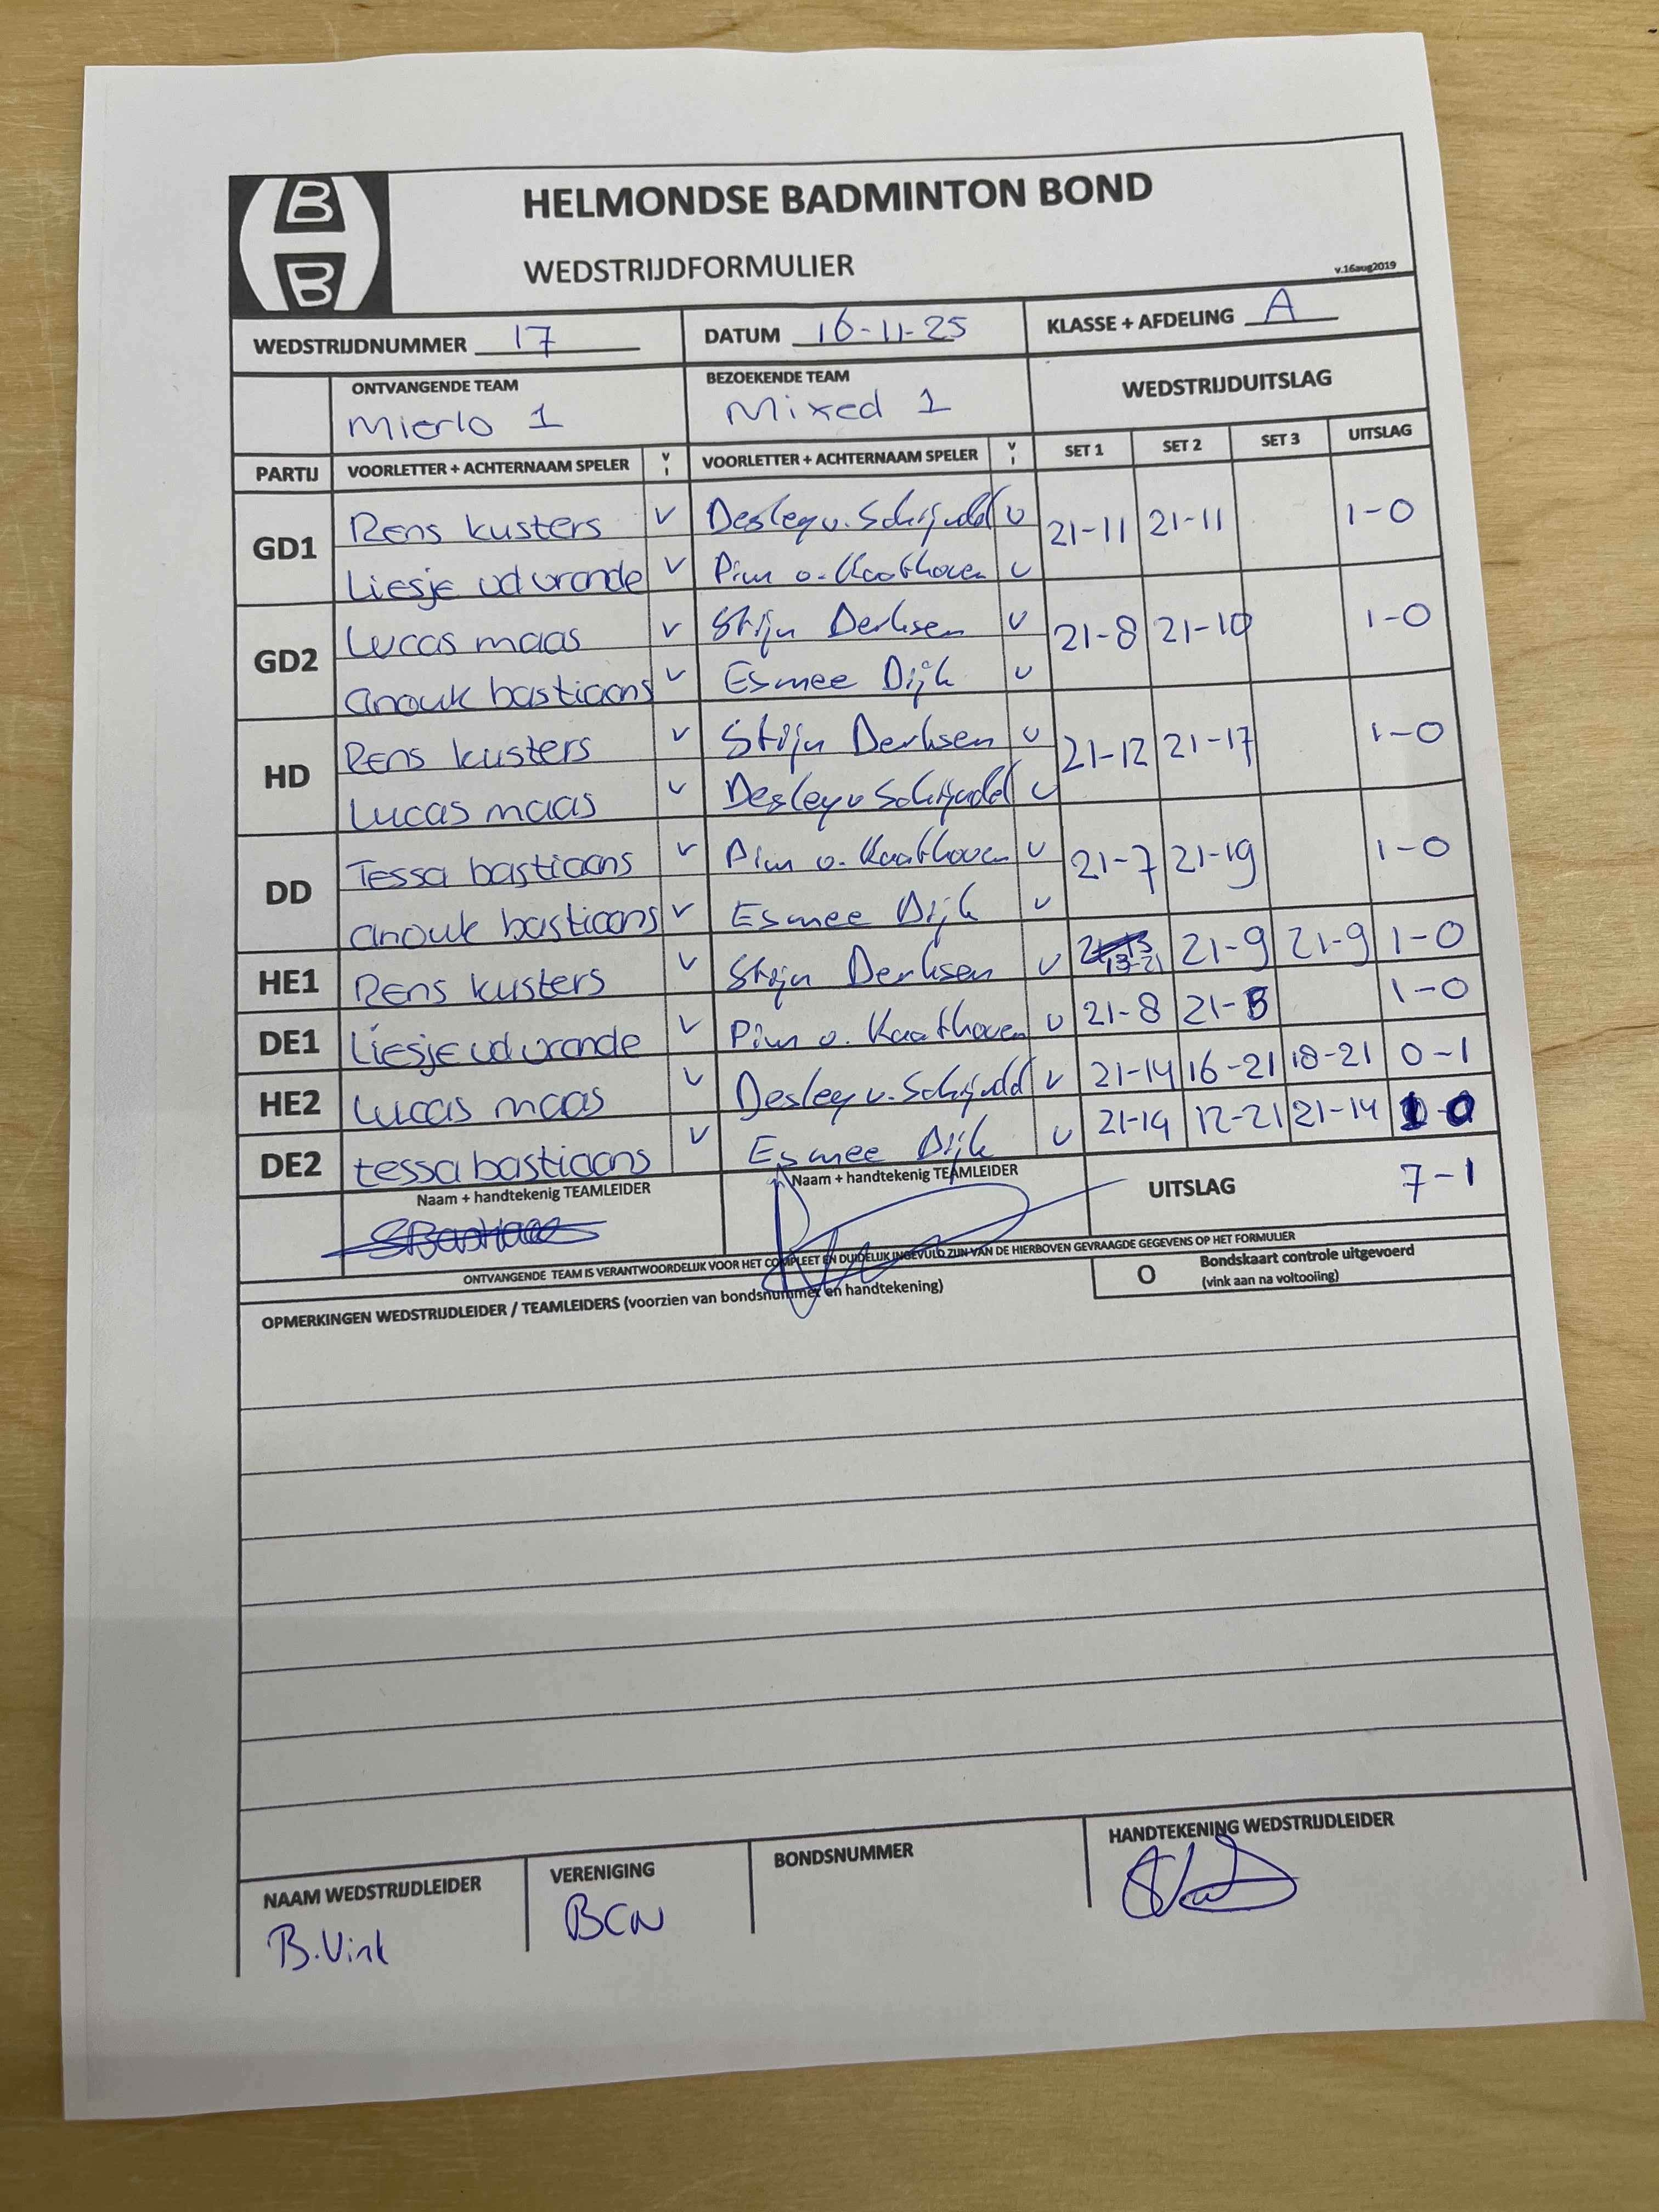 B
B
HELMONDSE BADMINTON BOND
WEDSTRIJDFORMULIER
v.16aug2019
WEDSTRIJDNUMMER 17 DATUM 16-11-25 KLASSE + AFDELING A
ONTVANGENDE TEAM BEZOEKENDE TEAM WEDSTRIJDUITSLAG
Mierlo 1 Mixed 1
PARTIJ VOORLETTER + ACHTERNAAM SPELER V I VOORLETTER + ACHTERNAAM SPELER V I SET 1 SET 2 SET 3 UITSLAG
GD1 Rens kusters v Desley v. Schijndel v 21-11 21-11 1-0
Liesje vd vrande v Pim v. Kaathoven v
GD2 Lucas maas v Stijn Derksen v 21-8 21-10 1-0
anouk bastiaans v Esmee Dijk v
HD Rens kusters v Stijn Derksen v 21-12 21-17 1-0
Lucas maas v Desley v Schijndel v
DD Tessa bastiaans v Pim v. Kaathoven v 21-7 21-19 1-0
anouk bastiaans v Esmee Dijk v
HE1 Rens kusters v Stijn Derksen v 13-21 21-9 21-9 1-0
DE1 Liesje vd vrande v Pim v. Kaathoven v 21-8 21-5 1-0
HE2 Lucas maas v Desley v. Schijndel v 21-14 16-21 18-21 0-1
DE2 tessa bastiaans v Esmee Dijk v 21-19 12-21 21-14 1-0
Naam + handtekenig TEAMLEIDER Naam + handtekenig TEAMLEIDER UITSLAG 7-1
ONTVANGENDE TEAM IS VERANTWOORDELIJK VOOR HET COMPLEET EN DUIDELIJK INGEVULD ZIJN VAN DE HIERBOVEN GEVRAAGDE GEGEVENS OP HET FORMULIER
OPMERKINGEN WEDSTRIJDLEIDER / TEAMLEIDERS (voorzien van bondsnummer en handtekening)
O Bondskaart controle uitgevoerd
(vink aan na voltooiing)
NAAM WEDSTRIJDLEIDER VERENIGING BONDSNUMMER HANDTEKENING WEDSTRIJDLEIDER
B.Vink BCN